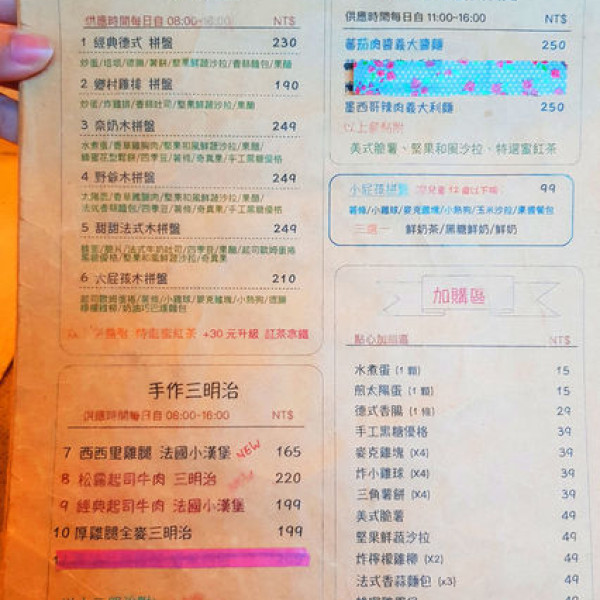 供應時間每日自 08:00-16:00 NT$
1 經典德式 拼盤 230
2 鄉村雞排 拼盤 190
炒蛋/炸雞排/香蒜吐司/堅果鮮蔬沙拉/果醋
3 奈奶木拼盤 249
水煮蛋/香草雞胸肉/堅果和風鮮蔬沙拉/果醋/
蜂蜜花型鬆餅/四季豆/薯條/奇異果/手工黑糖優格
4 野爺木拼盤 249
太陽蛋/香草雞腿肉/堅果和風鮮蔬沙拉/果醋/
法式香蒜麵包/四季豆/薯條/奇異果/手工黑糖優格
5 甜甜法式木拼盤 249
黑糖優格/堅果和風鮮蔬沙拉/奇異果
6 大屁孩木拼盤 210
起司歐姆蛋捲/薯條/小雞球/麥克雞塊/小熱狗/德腸
特選蜜紅茶 +30 元升級 紅茶冰鐵
手作三明治
供應時間每日自 08:00-16:00 NT$
7 西西里雞腿 法國小漢堡 NEW 165
8 松露起司牛肉 三明治 220
9 經典起司牛肉 法國小漢堡 199
10 厚雞腿全麥三明治 199
供應時間每日自 11:00-16:00 NT$
蕃茄肉醬義大醬麵 250
墨西哥辣肉義大利麵 250
以上餐點附
美式脆薯、堅果和風沙拉、特選蜜紅茶
小屁孩拼盤 99
薯條/小雞球/麥克雞塊/小熱狗/玉米沙拉/果醬餐包
三選一 鮮奶茶/黑糖鮮奶/鮮奶
加購區
點心加購區 NT$
水煮蛋 (1 顆) 15
煎太陽蛋 (1 顆) 15
德式香腸 (1 條) 29
手工黑糖優格 39
麥克雞塊 (X4) 39
炸小雞球 (X4) 39
三角薯餅 (X4) 39
美式脆薯 49
堅果鮮蔬沙拉 49
炸檸檬雞柳 (X2) 49
法式香蒜麵包 (x3) 49